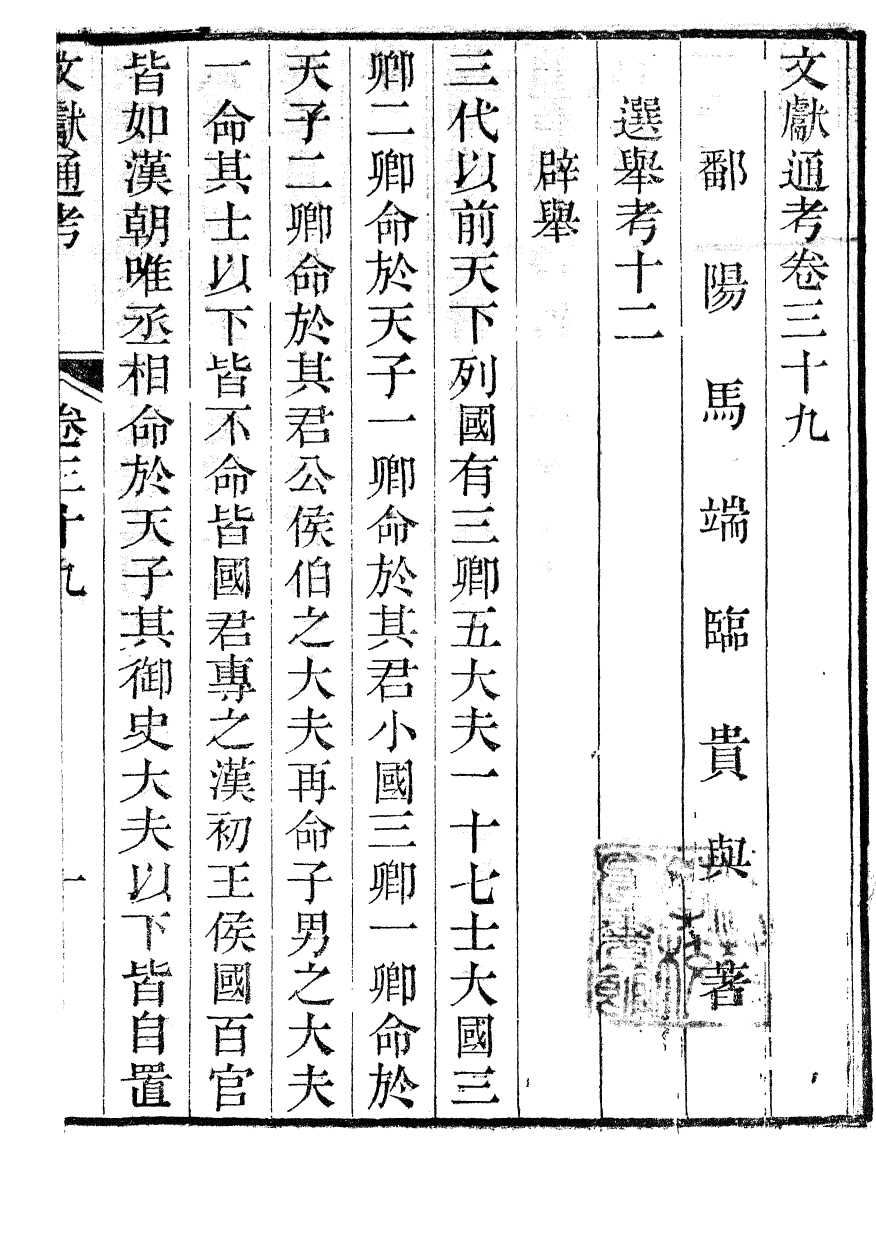 文獻通考卷三十九
鄱陽馬端臨貴與著
選舉考十二
辟舉
三代以前天下列國有三卿五大夫一十七士大國三
卿二卿命於天子一卿命於其君小國三卿一卿命於
天子二卿命於其君公侯伯之大夫再命子男之大夫
一命其士以下皆不命皆國君專之漢初王侯國百官
皆如漢朝唯丞相命於天子其御史大夫以下皆自置
文獻通考 卷三十九 一